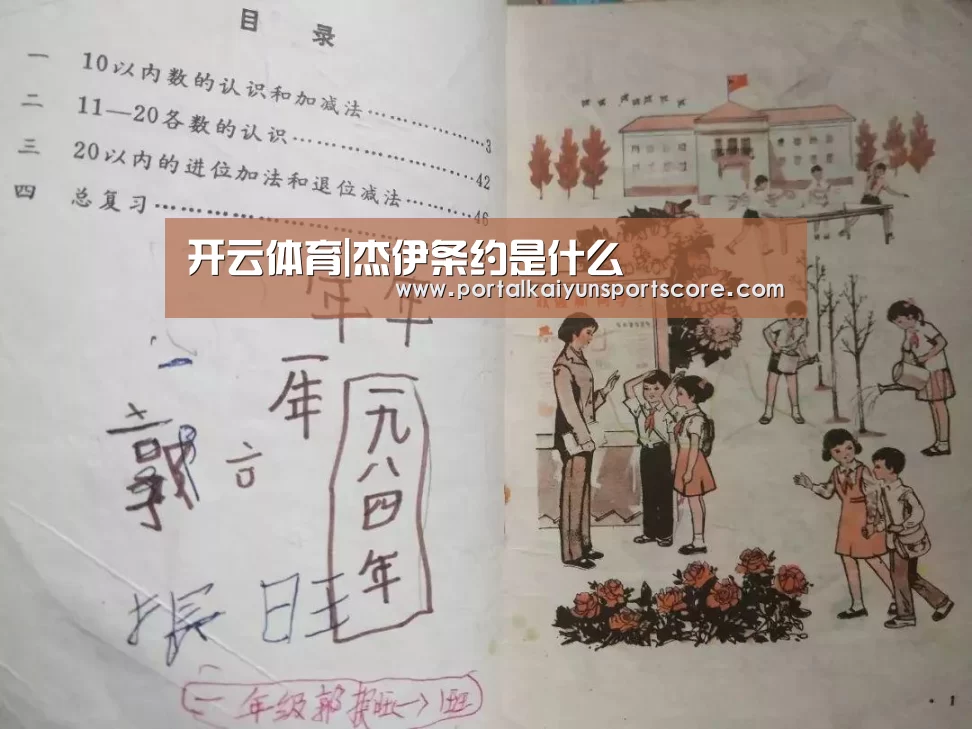 目 录
一 10以内数的认识和加减法……………3
二 11—20各数的认识……………………42
三 20以内的进位加法和退位减法………46
四 总复习……………
开云体育|杰伊条约是什么
www.portalkaiyunsportscore.com
年年
一年
一九八四年
郭 言
振 旺
一年级郭振旺
1